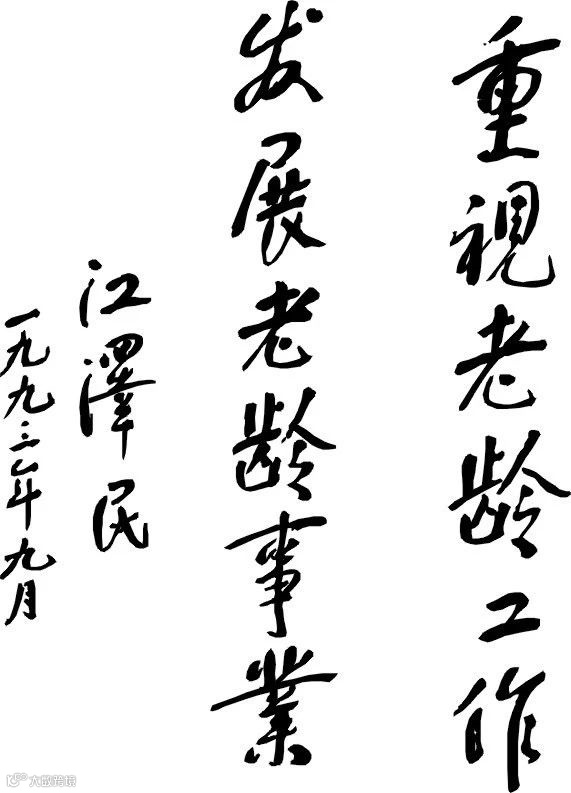 重視老龄工作
发展老龄事業
江澤民
一九九三年九月
大数跨境